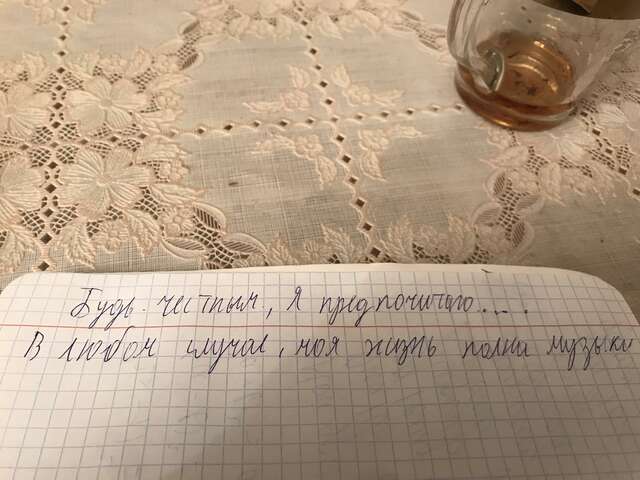 Будь честным, я предпочитаю....
В любом случае, моя жизнь полна музыки